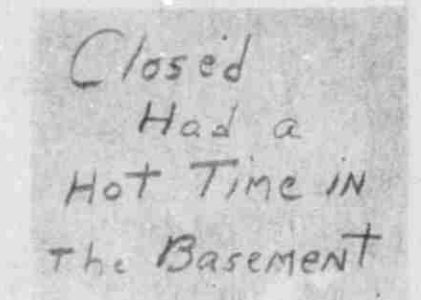 Closed
Had a
Hot Time in
The Basement